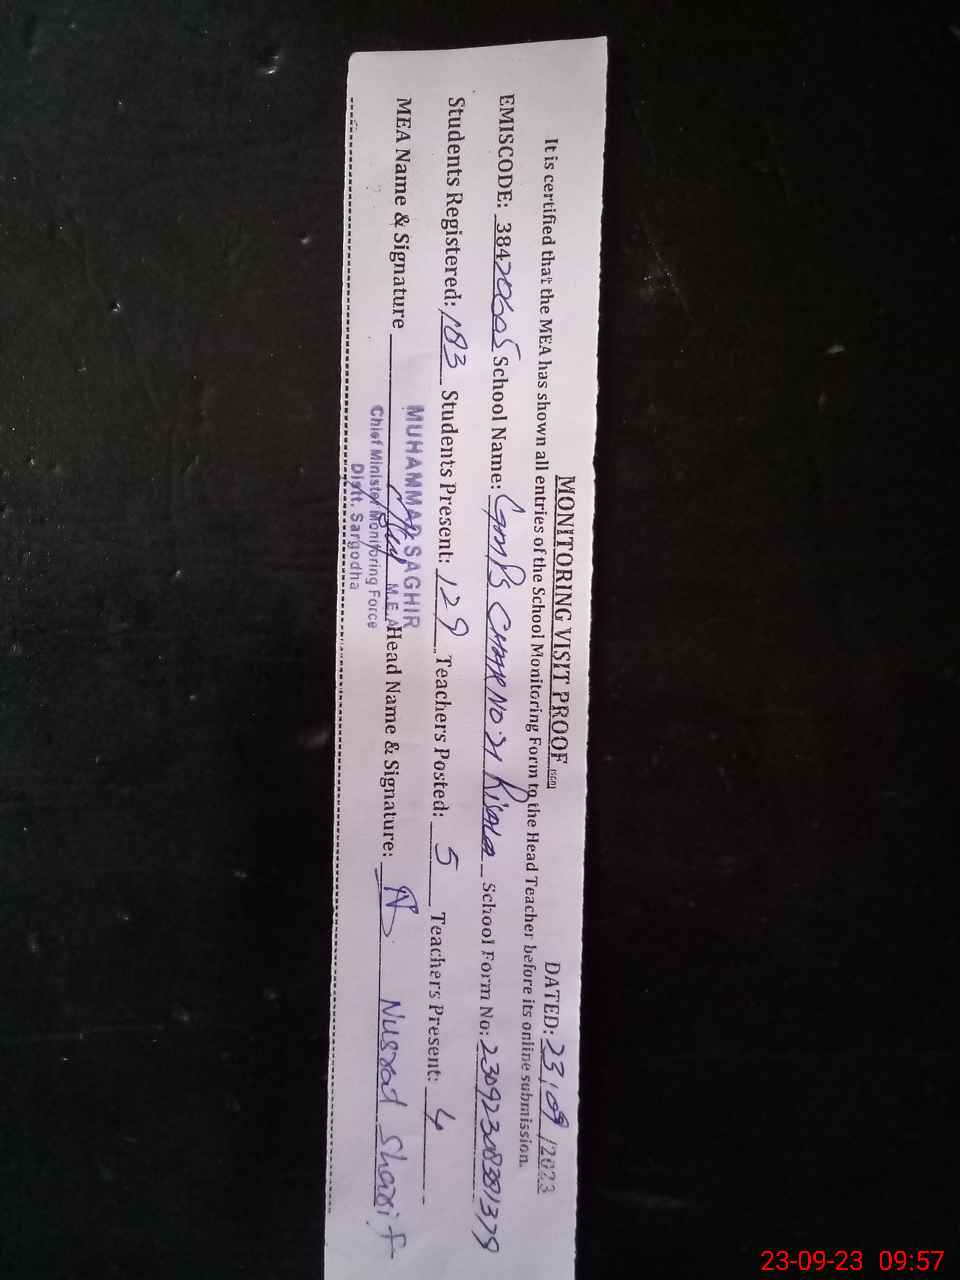 MONITORING VISIT PROOF
DATED: 23/09/2023
It is certified that the MEA has shown all entries of the School Monitoring Form to the Head Teacher before its online submission.
EMISCODE: 38420605 School Name: GMPS CHAK NO 21 Risala School Form No:
Students Registered: 183 Students Present: 129 Teachers Posted: 5 Teachers Present: 4
MEA Name & Signature Head Name & Signature: Nusrad Sharif
MUHAMMAD SAGHIR
M.E.A
Chief Minister Monitoring Force
Distt. Sargodha
23-09-23 09:57